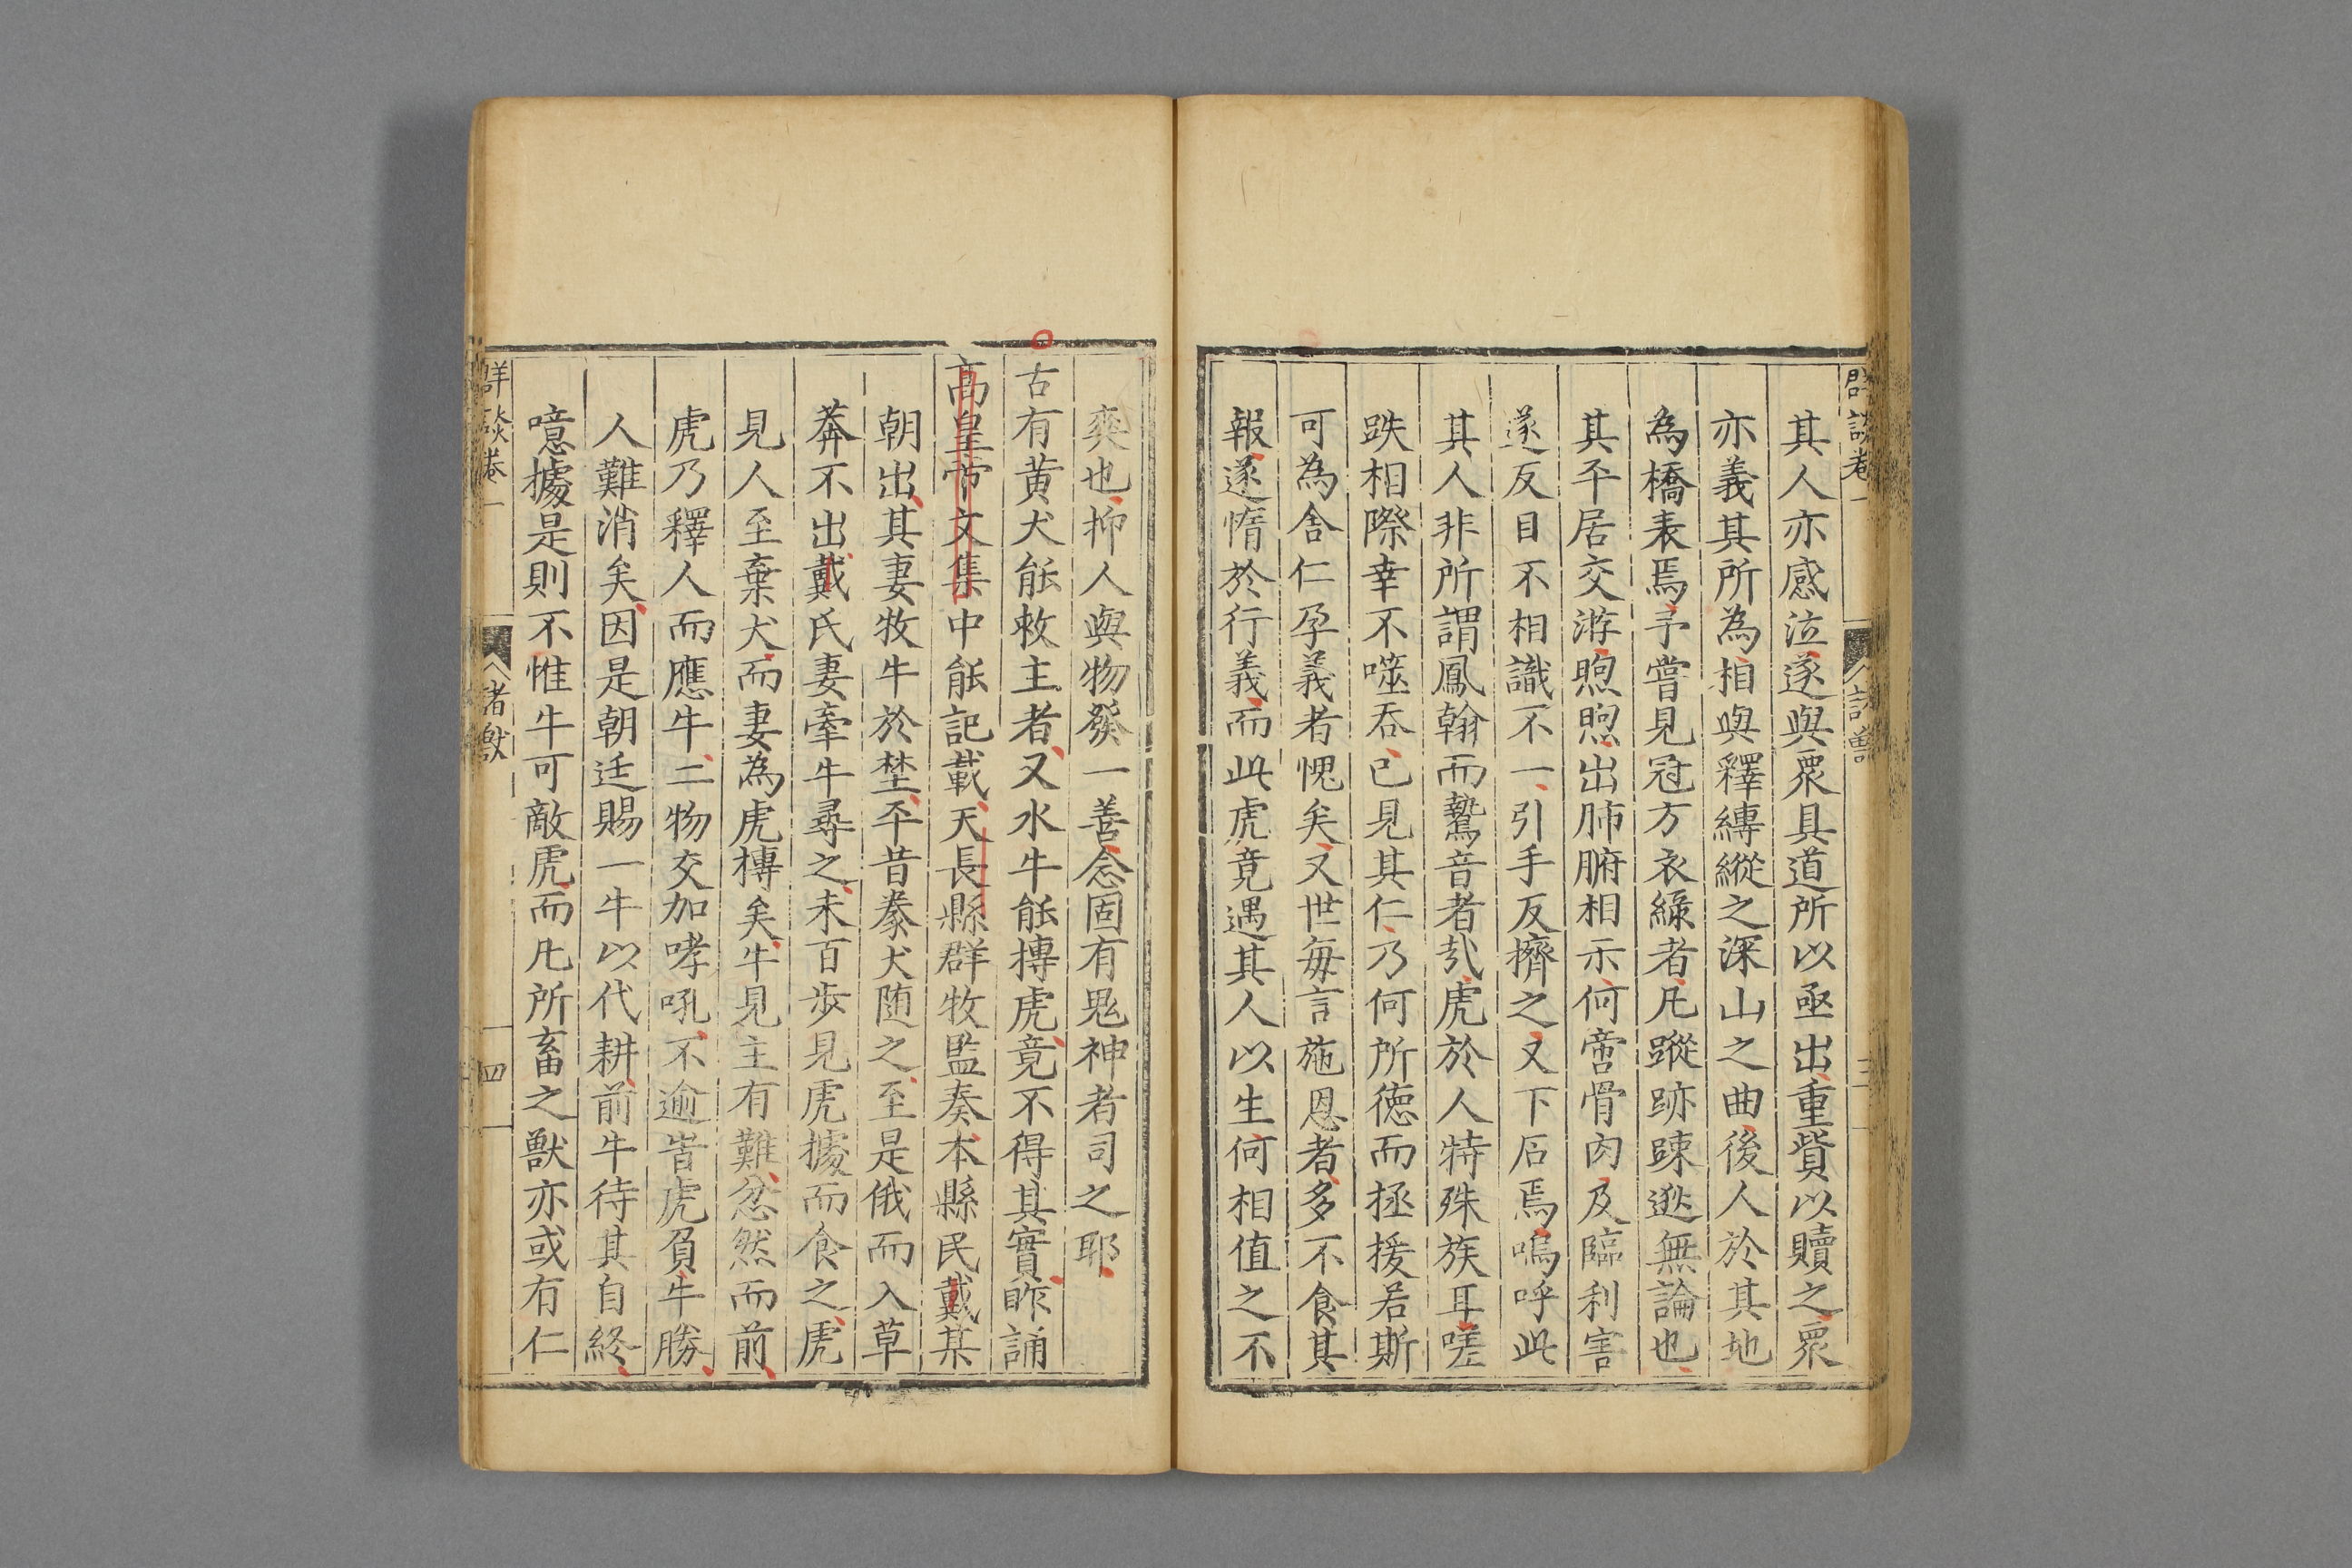 群談卷一
其人亦感泣遂與衆具道所以亟出重貲以贖之衆
亦義其所為相與釋縛縱之深山之曲後人於其地
為橋表焉予嘗見冠方衣綠者凡蹤跡踈逖無論也
其平居交游煦煦出肺腑相示何啻骨肉及臨利害
遂反目不相識不一引手反擠之又下石焉嗚呼此
其人非所謂鳳翰而鷙音者㢤虎於人特殊族耳嗟
跌相際幸不噬吞已見其仁乃何所德而拯援若斯
可為舍仁孕義者愧矣又世每言施恩者多不食其
報遂惰於行義而此虎竟遇其人以生何相值之不
奭也抑人與物發一善念固有鬼神者司之耶
古有黄犬能救主者又水牛能摶虎竟不得其實昨誦
高皇帝文集中能記載天長縣群牧監奏本縣民戴某
朝出其妻牧牛於埜平昔豢犬随之至是俄而入草
莽不出戴氏妻牽牛尋之未百步見虎據而食之虎
見人至棄犬而妻為虎摶矣牛見主有難忿然而前
虎乃釋人而應牛二物交加哮吼不逾旹虎負牛勝
人難消矣因是朝廷賜一牛以代耕前牛待其自終
噫據是則不惟牛可敵虎而凡所畜之獸亦或有仁
群談卷一
諸獸
四